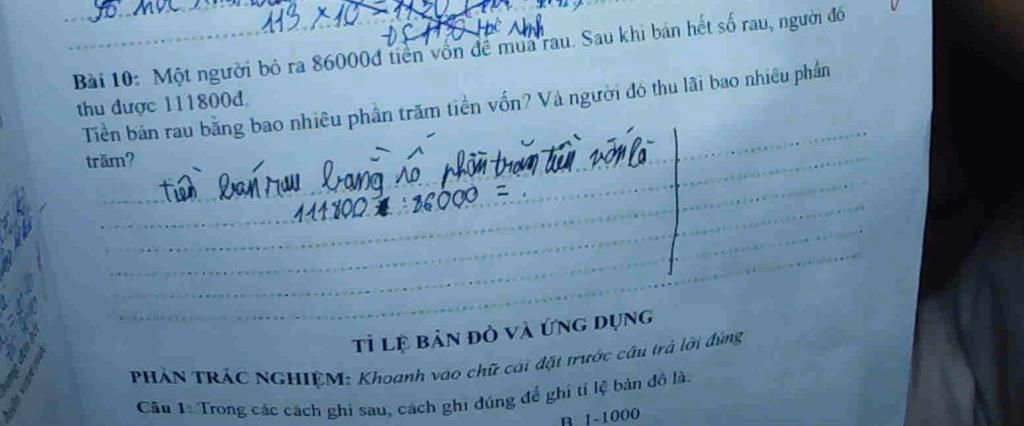 113 × 10 = 1130
ĐS 1130 Học sinh
Bài 10: Một người bỏ ra 86000đ tiền vốn để mua rau. Sau khi bán hết số rau, người đó
thu được 111800đ.
Tiền bán rau bằng bao nhiêu phần trăm tiền vốn? Và người đó thu lãi bao nhiêu phần
trăm?
tiền bán rau bằng số phần trăm tiền vốn là
111800 : 86000 =
TỈ LỆ BẢN ĐỒ VÀ ỨNG DỤNG
PHẦN TRẮC NGHIỆM: Khoanh vào chữ cái đặt trước câu trả lời đúng
Câu 1: Trong các cách ghi sau, cách ghi đúng để ghi tỉ lệ bản đồ là:
B. 1-1000